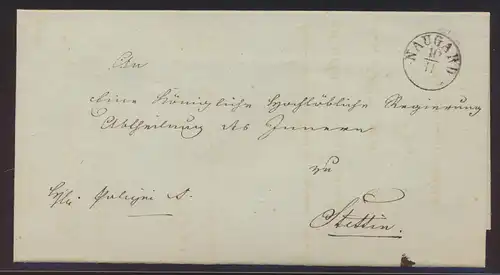 NAUGARD
10
11
An
Eine Königliche Hochlöbliche Regierung
Abtheilung des Innern
zu
Polizei S.
Stettin.